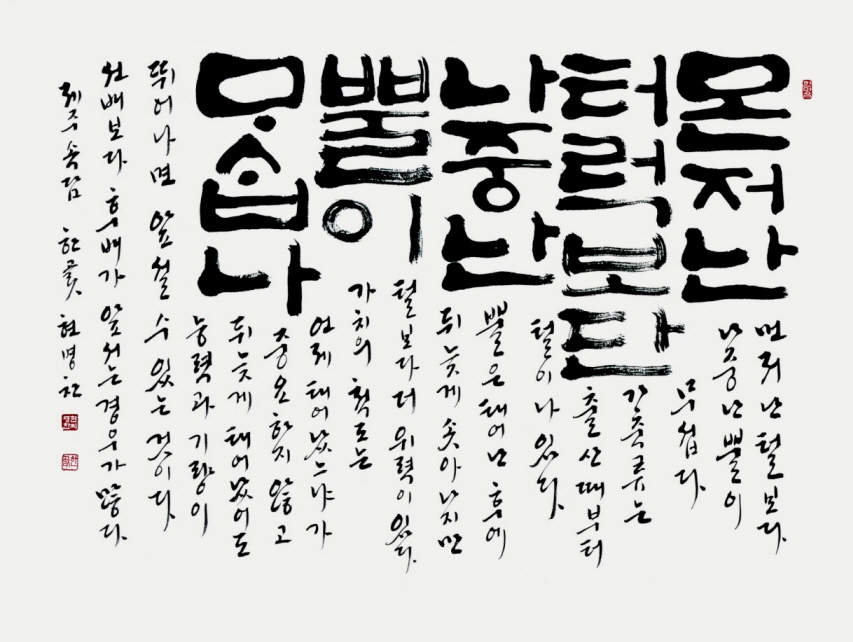 몬저난
터럭보단
나중난
뿔이
무습나
먼저 난 털보다
나중 난 뿔이
무섭다.
가축류는
출산때부터
털이나 있다.
뿔은 태어난 후에
뒤늦게 솟아나지만
털보다 더 위력이 있다.
가치의 척도는
언제 태어났느냐가
중요하지 않고
뒤늦게 태어났어도
능력과 기량이
뛰어나면 앞설 수 있는 것이다
선배보다 후배가 앞서는 경우가 많다.
제주속담 한글 현병찬